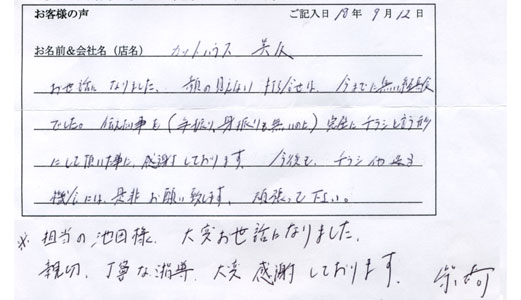 お客様の声 ご記入日 18年 9月 12日
お名前&会社名(店名) カットハウス 英
お世話になりました。顔の見えない打合せは、今までに無い経験
でした。伝えたい事を(手振り、身振りも無いのに)完全にチラシと言う形
にして頂いた事に感謝しております。今後も、チラシ
機会には、是非お願い致します。頑張って下さい。
※担当の池田様、大変お世話になりました。
親切、丁寧な指導、大変感謝しております。